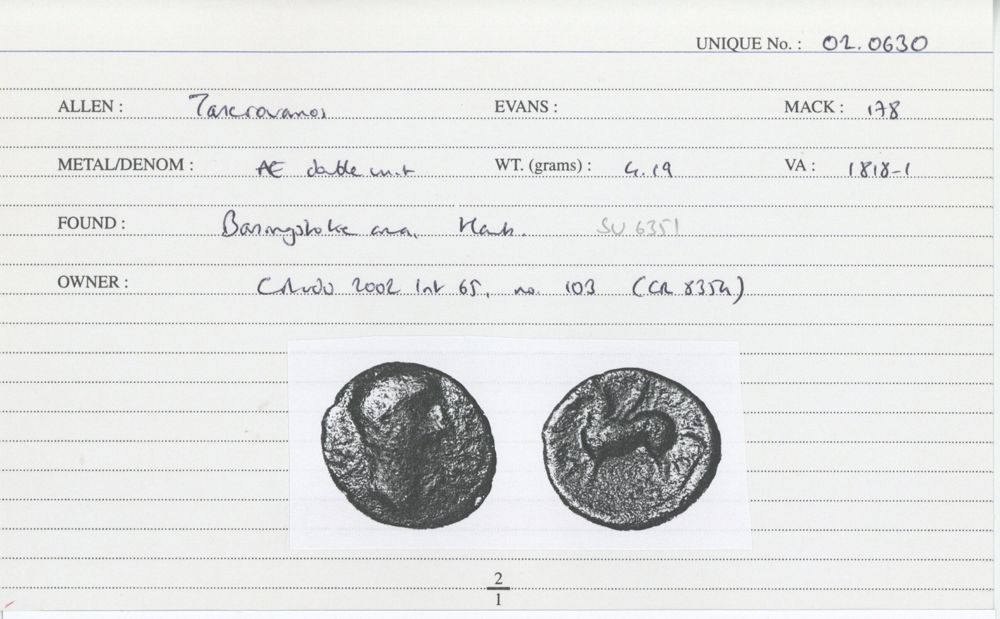 UNIQUE No. : 02.0630
ALLEN : Tasciovanos EVANS : MACK : 178
METAL/DENOM : AE double unit WT. (grams) : 4.19 VA : 1818-1
FOUND : Basingstoke area, Hants. SU 6351
OWNER : 2002 65, no. 103 (CR 835h)
2
1